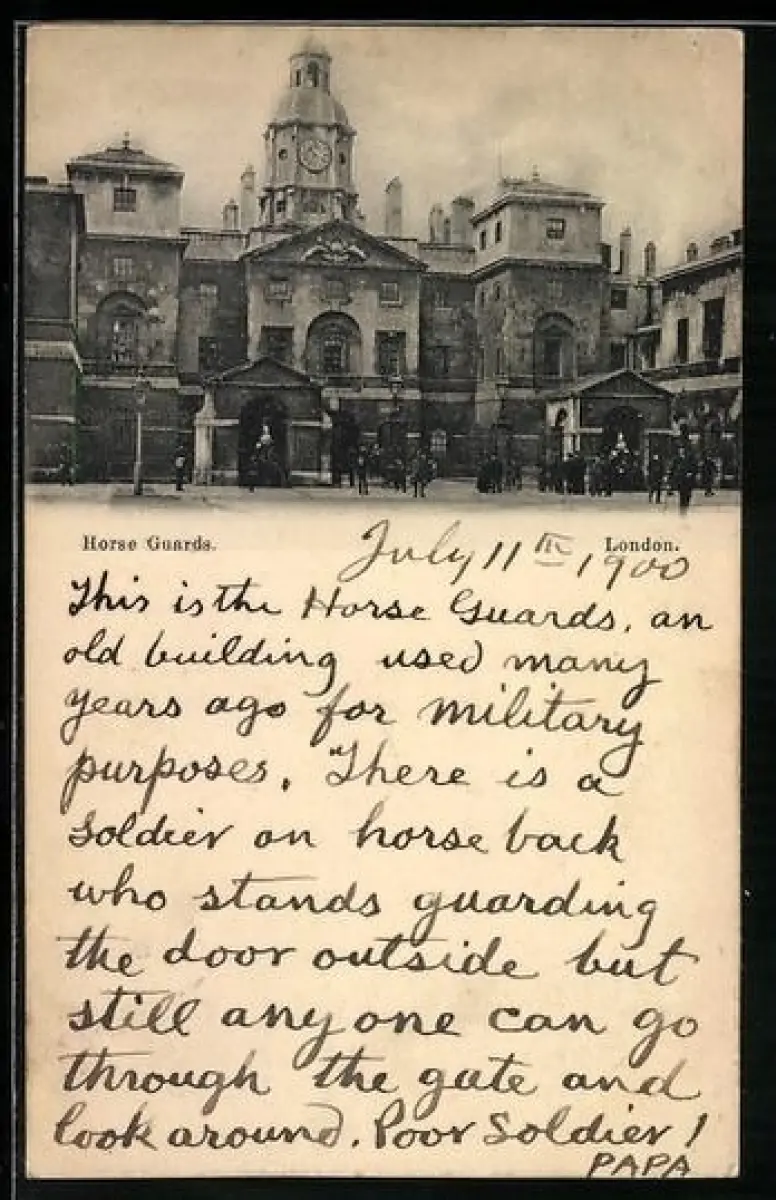 Horse Guards. London.
July 11th, 1900
This is the Horse Guards, an
old building used many
years ago for military
purposes. There is a
soldier on horse back
who stands guarding
the door outside but
still any one can go
through the gate and
look around. Poor Soldier!
PAPA